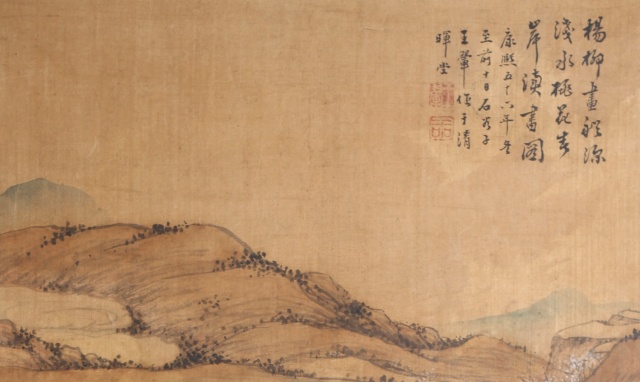 楊柳畫
淺水桃花春
岸讀書圖
康熙五十六年冬
至前十日石谷子
王翬作于清
暉堂